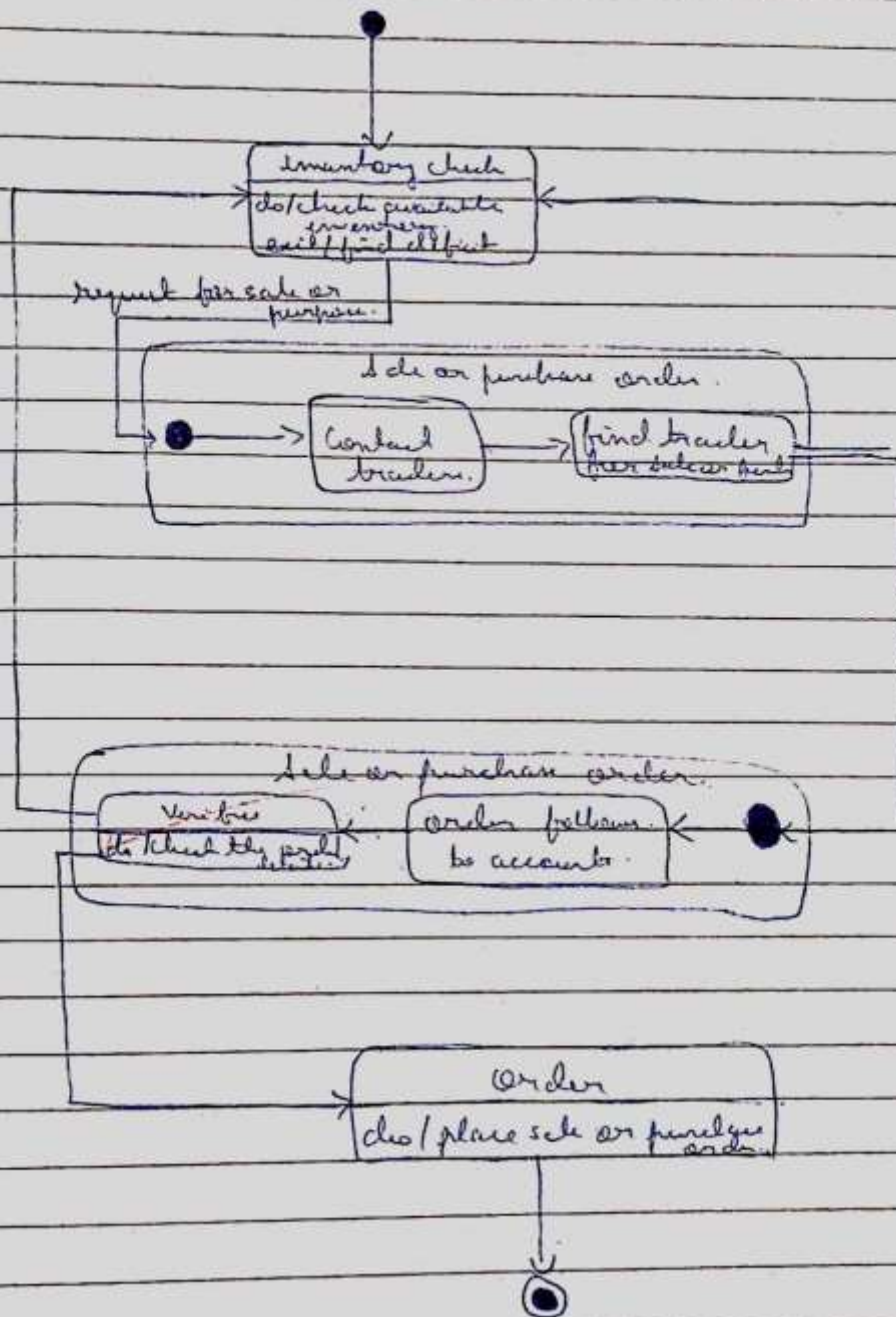 Inventory check
do/check available
inventory.
exit/find deficit
request for sale or
purpose.
Sale or purchase order.
Contact
traders.
find trader
for sale or
Sale or purchase order.
Verifies
do/check the
order follows
to accounts.
order
do/place sale or purchase
order.